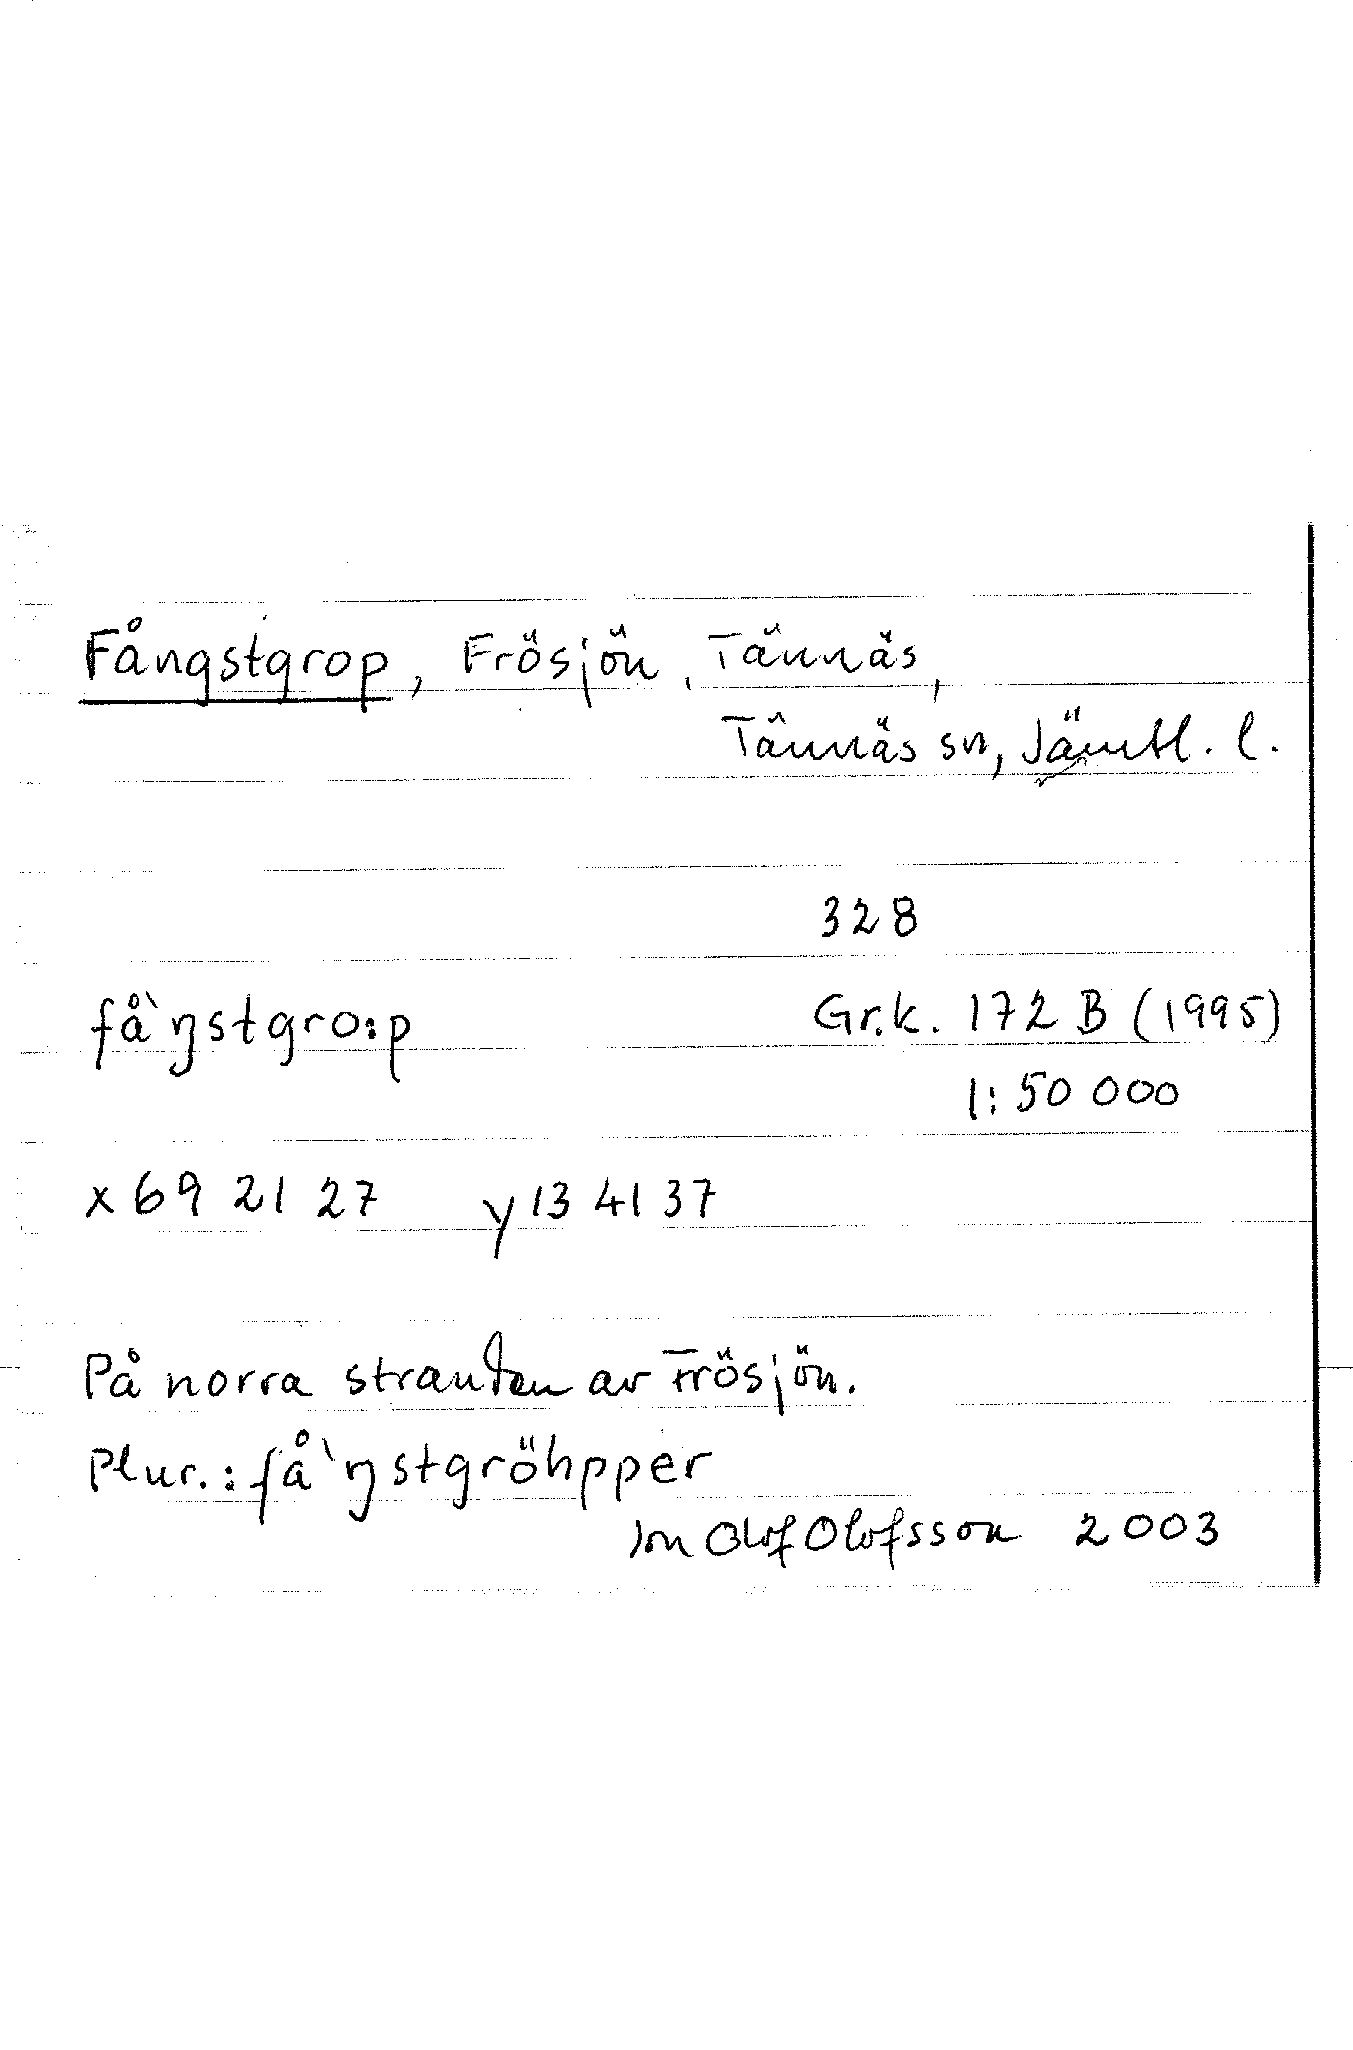 Fångstgrop, Frösjön, Tännäs,
Tännäs sn, Jämtl. l.
328
få`ŋstgro:p Gr.k. 172 B (1995)
1:50 000
x 69 21 27 y 13 41 37
På norra stranden av Frösjön.
Plur.: få`ŋstgröhpper
Jon Olof Olofsson 2003